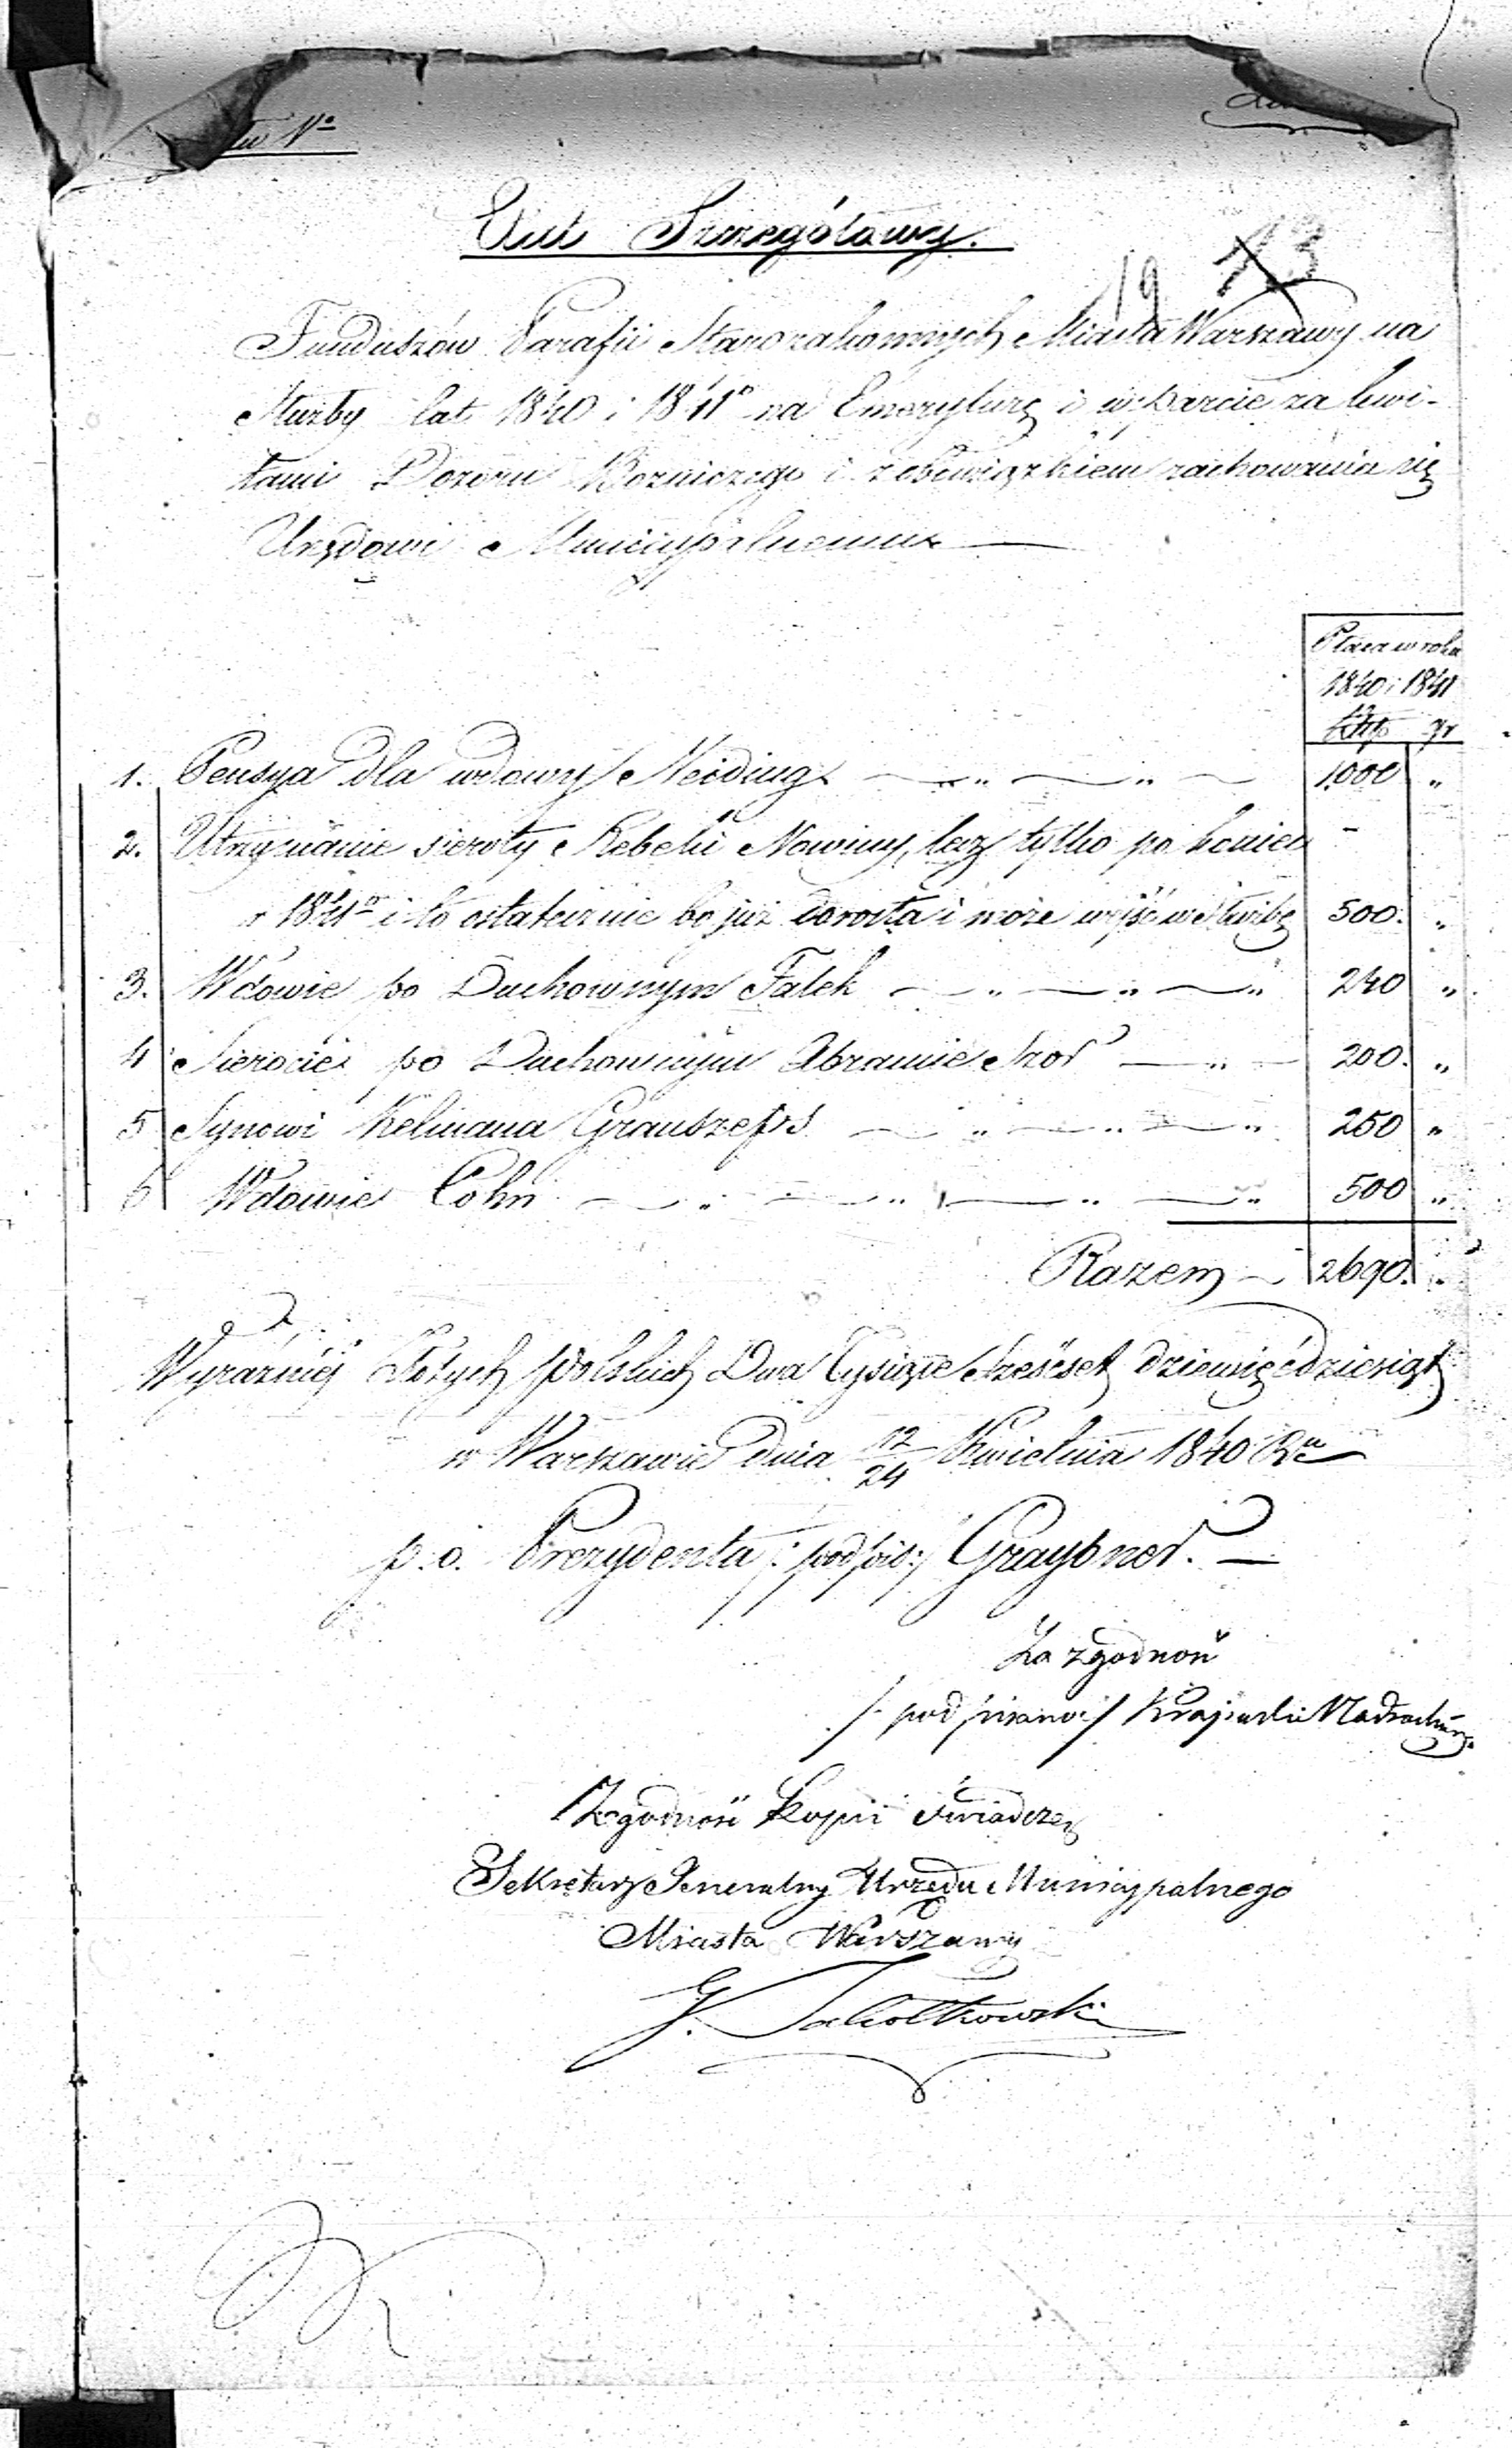 N°
Etat Szczegółowy.
19 73
Funduszów Parafii Starozakonnych Miasta Warszawy na
służby lat 1840 i 1841° na Emeryturę i wsparcie za kwi-
tami Dozoru Bożniczego i z obowiązkiem zachowania się
Urzędowi Municypalnemu —
Płaca w roku
1840 i 1841
Złtp gr
1. Pensya dla wdowy Neiding — „ — „ — 1000 „
2. Utrzymanie sieroty Rebeki Nowiny, lecz tylko po koniec -
r 1841° i to ostatecznie bo już dorosła i może wejść w służbę 500. „
3. Wdowie po Duchownym Falek — „ — „ — „ 240 „
4 Sierocie po Duchownym Abramie Szor — „ — 200. „
5 Synowi Kelmana Grauszeps — „ — „ — „ 250 „
6 Wdowie Cohn — „ — „ — „ — „ 500 „
Razem — 2690. „
Wyraźniej Złotych polskich Dwa Tysiące sześćset dziewięćdziesiąt
w Warszawie dnia 12/24 Kwietnia 1840 Ru
p.o. Prezydenta /: podpis:/ Graybner. —
Za zgodność
/: podpisano:/ Krajewski Nadrachm.
Zgodność kopii świadczę
Sekretarz Generalny Urzędu Municypalnego
Miasta Warszawy